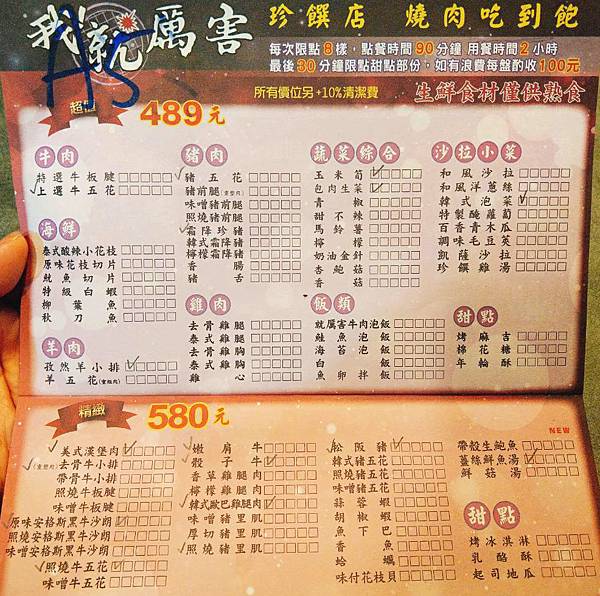 我就厲害
A5
珍饌店 燒肉吃到飽
每次限點8樣,點餐時間90分鐘 用餐時間2小時
最後30分鐘限點甜點部份,如有浪費每盤酌收100元
超值 489元
所有價位另+10%清潔費
生鮮食材僅供熟食
牛肉
特選牛板腱
上選牛五花
海鮮
泰式酸辣小花枝
原味花枝切片
魷魚切片
特級白蝦
柳葉魚
秋刀魚
羊肉
孜然羊小排
羊五花(重組肉)
豬肉
豬五花
豬前腿(重組肉)
味噌豬前腿
照燒豬前腿
霜降珍豬
韓式霜降豬
檸檬霜降豬
香腸
豬舌
雞肉
去骨雞腿
泰式雞腿
去骨雞胸
泰式雞胸
雞心
蔬菜綜合
玉米筍
包肉生菜
青椒
甜不辣
馬鈴薯
檸檬
奶油金針
杏鮑菇
香菇
飯類
就厲害牛肉泡飯
鮭魚泡飯
海苔泡飯
白飯
魚卵拌飯
沙拉小菜
和風沙拉
和風洋蔥絲
韓式泡菜
特製醃蘿蔔
百香青木瓜
調味毛豆莢
凱薩沙拉
珍饌雞湯
甜點
烤麻吉
棉花糖
年輪酥
精緻 580元
美式漢堡肉
(重組肉)去骨牛小排
帶骨牛小排
照燒牛板腱
味噌牛板腱
原味安格斯黑牛沙朗
照燒安格斯黑牛沙朗
味噌安格斯黑牛沙朗
照燒牛五花
味噌牛五花
嫩肩牛
骰子牛
香草雞腿肉
檸檬雞腿肉
韓式歐巴雞腿肉
味噌豬里肌
厚切豬里肌
照燒豬里肌
松阪豬
韓式豬五花
照燒豬五花
味噌豬五花
蒜蓉蝦
胡椒蝦
魚下巴
香魚
蛤蠣
味付花枝貝
NEW
帶殼生鮑魚
薑絲鮮魚湯
鮮菇湯
甜點
烤冰淇淋
乳酪酥
起司地瓜